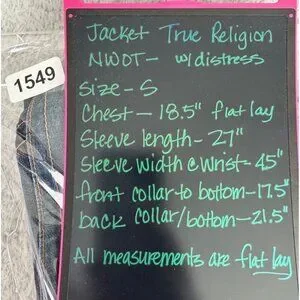 Jacket True Religion
NWOT - w/distress
1549
Size - S
Chest - 18.5" flat lay
Sleeve length - 27"
Sleeve width @ wrist - 45"
front collar to bottom - 17.5"
back collar/bottom - 21.5"
All measurements are flat lay